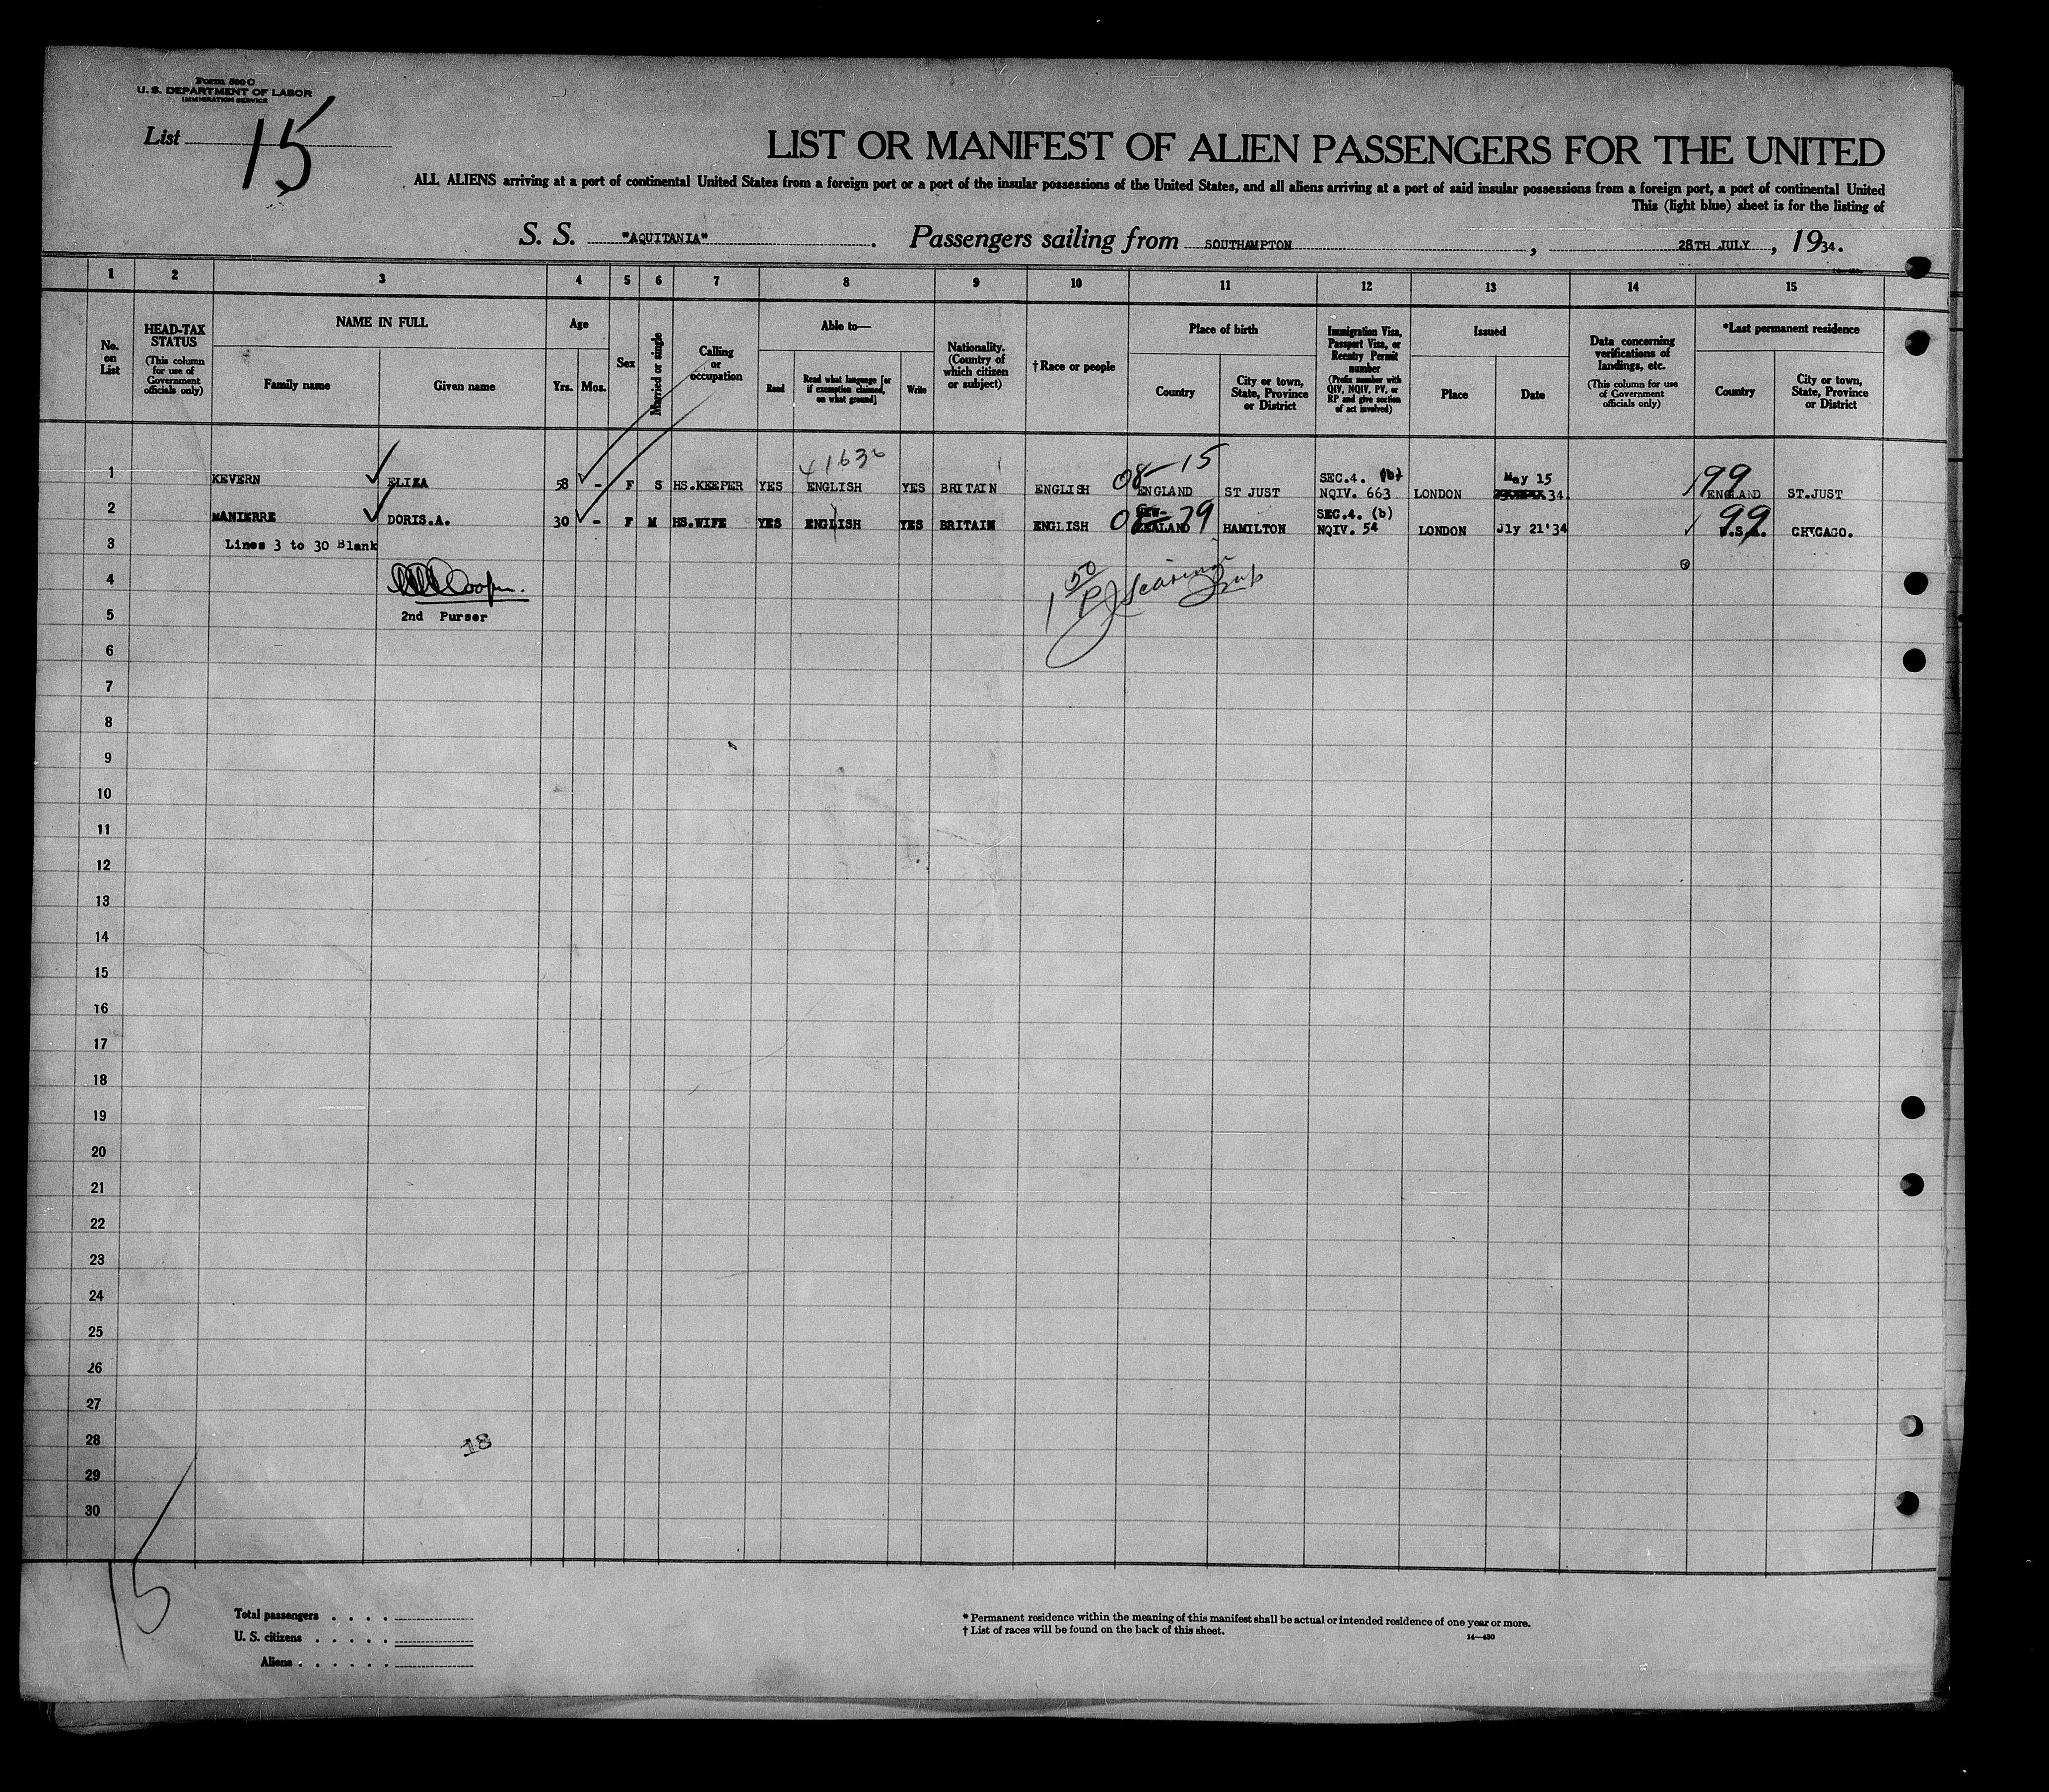 Form 500 C
U. S. DEPARTMENT OF LABOR
IMMIGRATION SERVICE
List 15
LIST OR MANIFEST OF ALIEN PASSENGERS FOR THE UNITED
ALL ALIENS arriving at a port of continental United States from a foreign port or a port of the insular possessions of the United States, and all aliens arriving at a port of said insular possessions from a foreign port, a port of continental United
This (light blue) sheet is for the listing of
S. S. "AQUITANIA" . Passengers sailing from SOUTHAMPTON , 28TH JULY , 1934.
1 2 3 4 5 6 7 8 9 10 11 12 13 14 15
No. on List
HEAD-TAX STATUS (This column for use of Government officials only)
NAME IN FULL
Family name
Given name
Age
Yrs. Mos.
Sex
Married or single
Calling or occupation
Able to—
Read
Read what language [or if exemption claimed, on what ground]
Write
Nationality. (Country of which citizen or subject)
† Race or people
Place of birth
Country
City or town, State, Province or District
Immigration Visa, Passport Visa, or Reentry Permit number (Prefix number with QIV, NQIV, PV, or RP and give section of act involved)
Issued
Place
Date
Data concerning verifications of landings, etc. (This column for use of Government officials only)
*Last permanent residence
Country
City or town, State, Province or District
41636
08-15
99
1 KEVERN ELIZA 58 - F S HS.KEEPER YES ENGLISH YES BRITAIN ENGLISH ENGLAND ST JUST SEC.4. (b) NQIV. 663 LONDON May 15 34. ENGLAND ST.JUST
2 MANIERRE DORIS.A. 30 - F M HS.WIFE YES ENGLISH YES BRITAIN ENGLISH NEW-ZEALAND HAMILTON SEC.4. (b) NQIV. 54 LONDON Jly 21'34 U.S.A. CHICAGO.
99
3 Lines 3 to 30 Blank
4
Cooper.
5 2nd Purser
6
7
8
9
10
11
12
13
14
15
16
17
18
19
20
21
22
23
24
25
26
27
28
18
29
30
15
Total passengers . . . .
U. S. citizens . . . . .
Aliens . . . . . .
* Permanent residence within the meaning of this manifest shall be actual or intended residence of one year or more.
† List of races will be found on the back of this sheet.
14—430